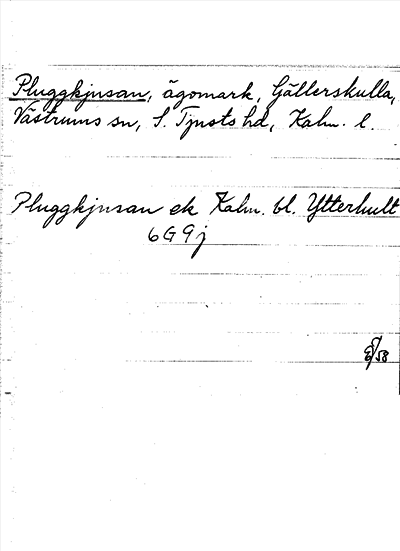 Pluggkjusan, ägomark, Gällerskulla,
Västrums sn, S. Tjusts hd, Kalm. l.
Pluggkjusan ek Kalm. bl. Ytterhult
6G9j